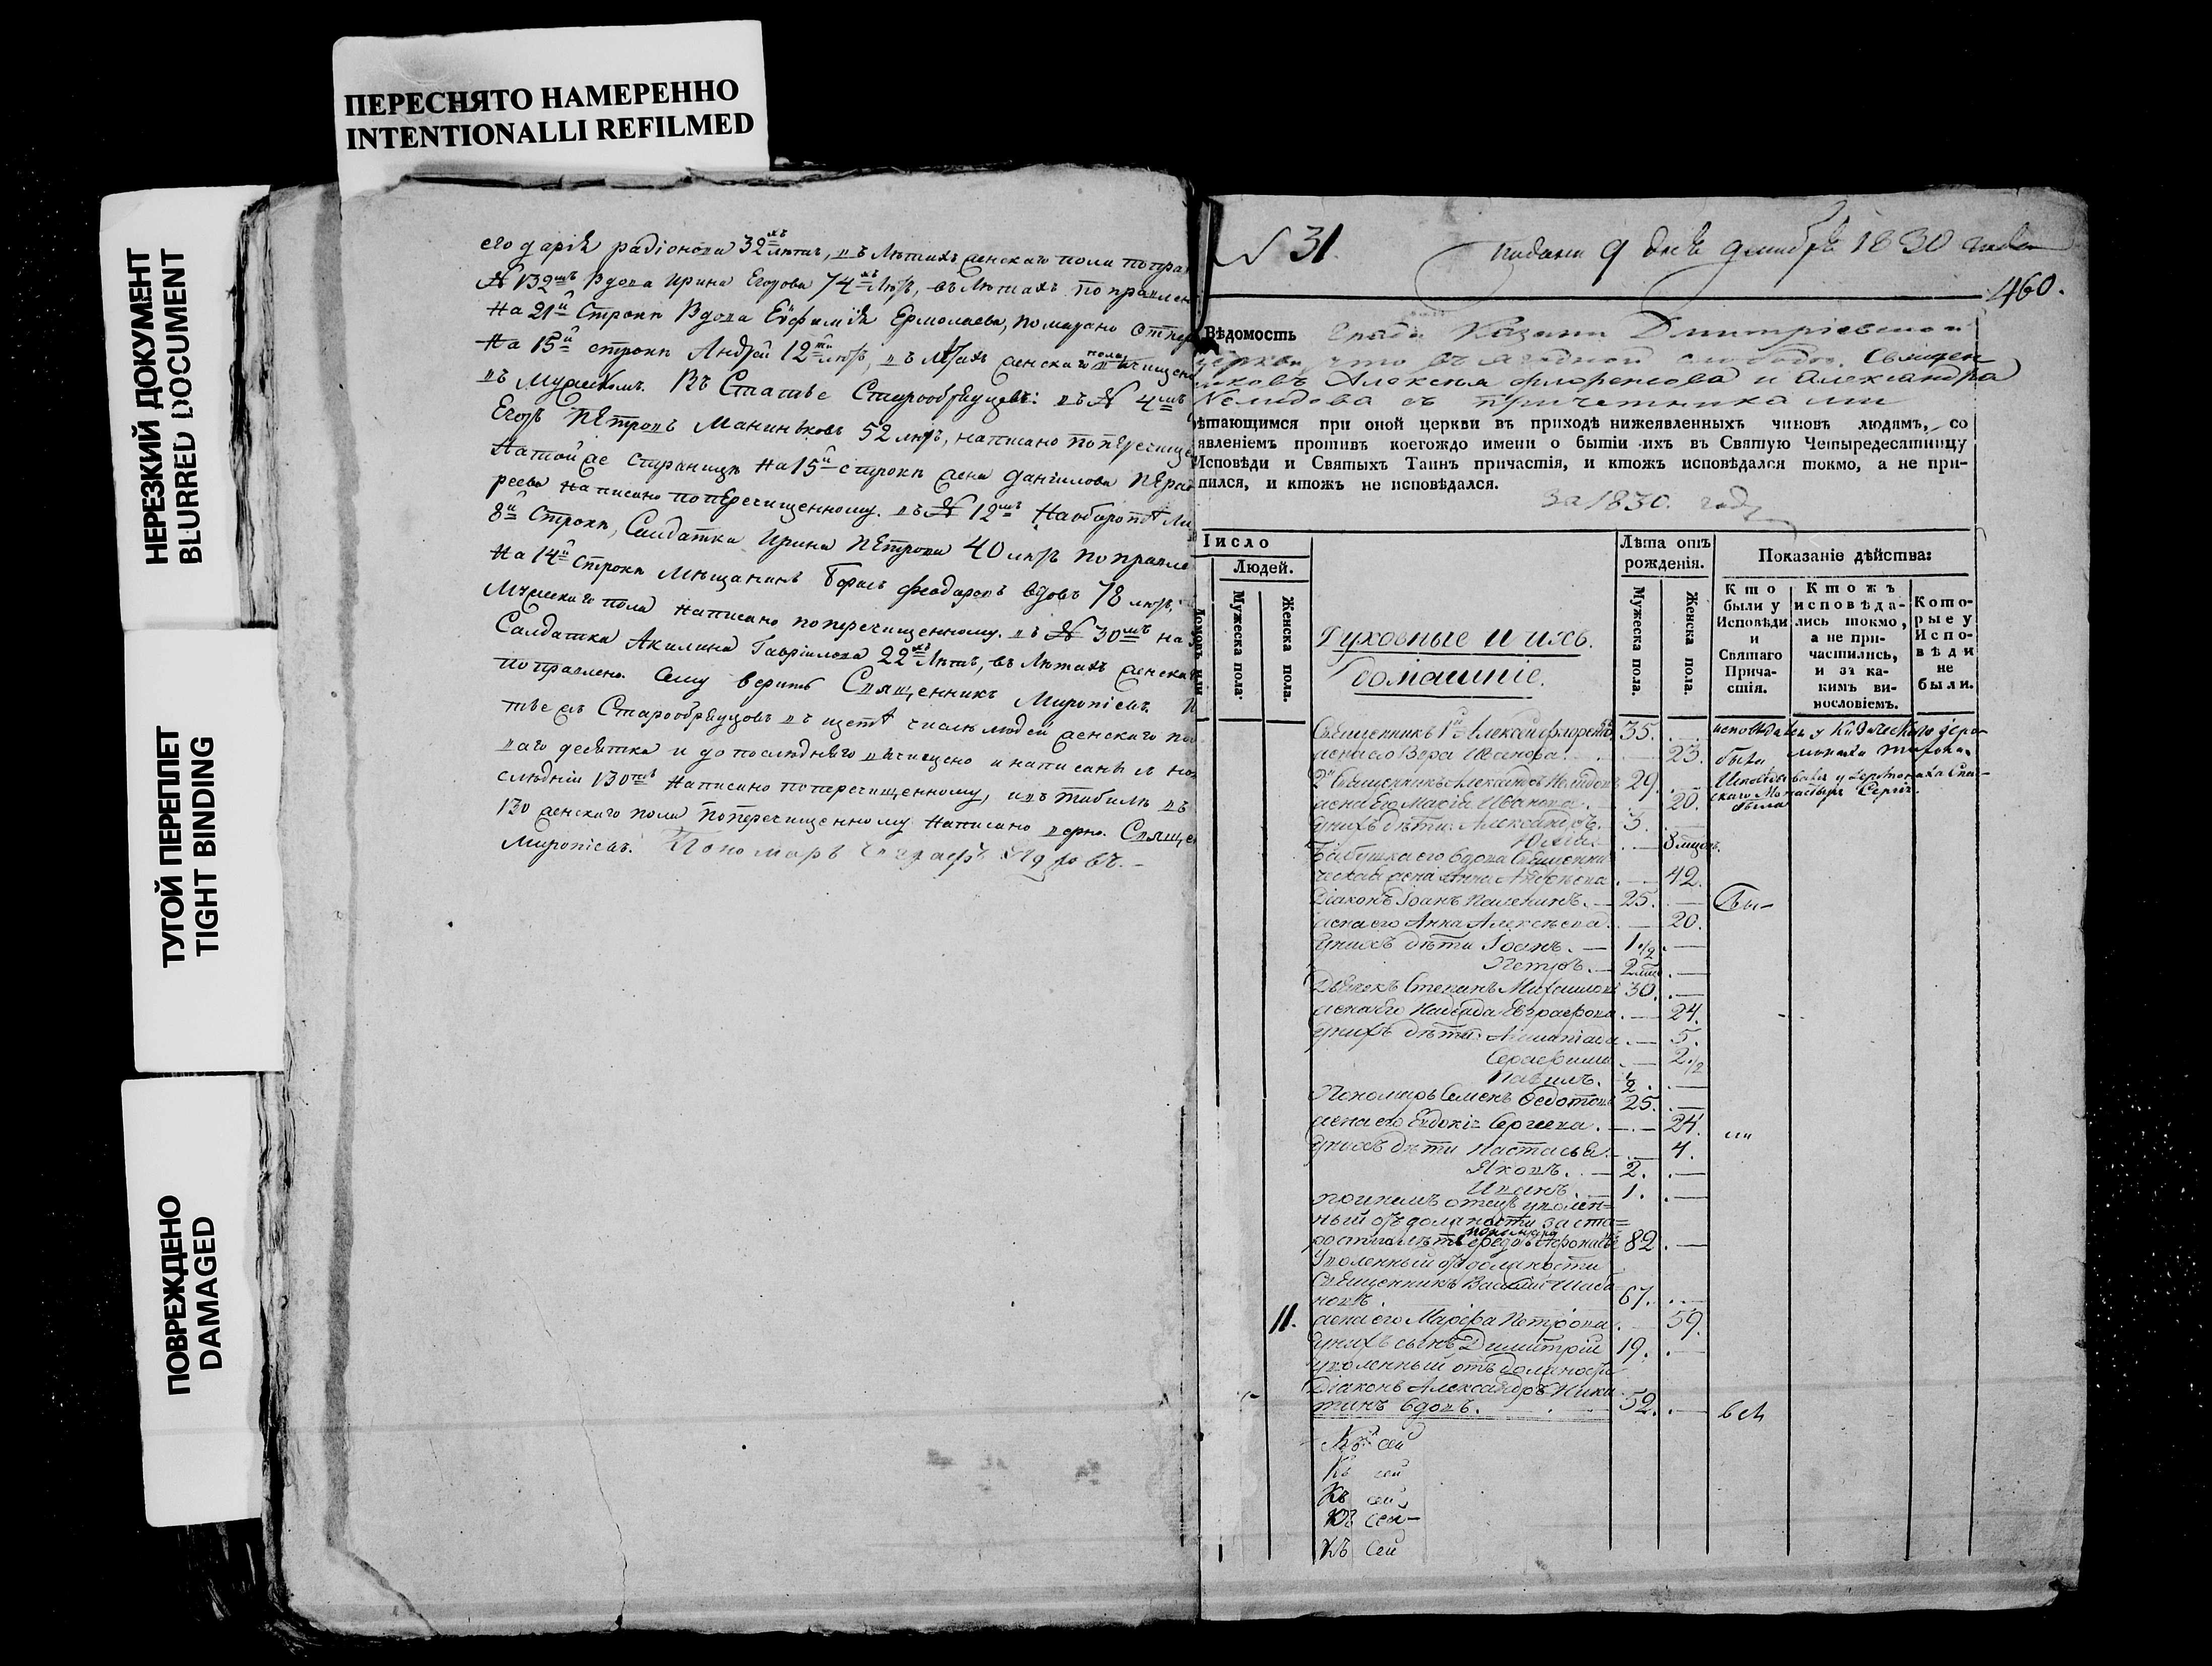 ПЕРЕСНЯТО НАМЕРЕННО
INTENTIONALLI REFILMED
НЕРЕЗКИЙ ДОКУМЕНТ
BLURRED DOCUMENT
ТУГОЙ ПЕРЕПЛЕТ
TIGHT BINDING
ПОВРЕЖДЕНО
DAMAGED
его дарія радіонова 32 лѣтъ, въ лѣтахъ женскаго пола попра
№ 132мъ Вдова Ирина Егорова 74 лѣтъ, въ лѣтахъ поправлен
На 21й строкѣ Вдова Евфимія Ермолаева, помарано
На 15й строкѣ Андрей 12ти лѣтъ, въ лѣтахъ женскаго пола
въ мужескомъ. Въ Статье Старообрядцевъ: въ № 4мъ
Егоръ Петровъ Маниньковъ 52 лѣтъ, написано поперечище
На той же страницѣ на 15й строкѣ жена данилова
реева написано поперечищенному. въ № 12мъ На оборотѣ ли
8й строкѣ, Салдатка Ирина Петрова 40 лѣтъ поправле
На 14й строкѣ мѣщанинъ Борисъ феодоровъ вдовъ 78 лѣтъ,
Мужескаго пола написано поперечищенному. въ № 30мъ на
Салдатка Акилина Гавріилова 22 лѣтъ, въ лѣтахъ женска
поправлено. Сему веритъ Священникъ Миропіевъ.
тье Старообрядцовъ въ щетѣ числѣ людей женскаго по
ваго десятка и до послѣдняго вычищено и написанъ
слѣдній 130мъ написано поперечищенному, въ
130 женскаго пола поперечищенному написано верно. Свяще
Миропіевъ. Пономарь
№ 31.
подана 9 дня декабря 1830 года
460.
Вѣдомость Града Казани Дмитріевской
церкви что въ Ягодной слободѣ. Священ
никовъ Алексѣя флоренсова и Александра
Нелидова съ причетниками
ѣтающимся при оной церкви въ приходѣ нижеявленныхъ чиновъ людямъ, со
явленіемъ противъ коегождо имени о бытіи ихъ въ Святую Четыредесятницу
Исповѣди и Святыхъ Таинъ причастія, и ктожъ исповѣдался токмо, а не при-
пился, и ктожъ не исповѣдался.
за 1830. годъ
Іисло
Людей.
Мужеска пола.
Женска пола.
Духовные и ихъ
домашніе.
Лѣта отъ
рожденія.
Мужеска пола.
Женска пола.
Показаніе дѣйства:
Кто
были у
Исповѣди
и
Святаго
Прича-
стія.
Ктожъ
исповѣда-
лись токмо,
а не при-
частились,
и за ка-
кимъ ви-
нословіемъ.
Кото-
рые у
Испо-
вѣди
не
были.
Священникъ 1й Алексей флоренсовъ 35.
жена его Вера Иванова. 23. была
2й Священникъ Александръ Нелидовъ 29.
жена его Марія Иванова. 20. была
у нихъ дѣти: Александръ. 3.
Юлія 8 мцовъ.
Бабушка его вдова Священни
ческая жена Анна Андреева 42.
Діаконъ Іоанъ 25.
жена его Анна Алексѣева. 20.
у нихъ дѣти Іоанъ. 1 1/2
Петръ. 2
Дьячекъ Степанъ Михаиловъ 30.
жена его Надежда Евграфова 24.
у нихъ дѣти: 5.
Серафима 2 1/2
Павилъ. 1/2
Пономарь Семенъ Федотовъ 25.
жена его Евдокія Сергеева. 24.
у нихъ дѣти Настасья. 4.
Яковъ. 2.
Иванъ. 1.
при немъ отецъ уволен=
ный отъ должности за ста=
ростію лѣтъ пономарь 82.
Уволенный отъ должности
Священникъ Василій
новъ. 67.
11. жена его Марфа Петрова 59.
у нихъ сынъ Димитрій 19.
уволенный отъ должности
Діаконъ Александръ Ники
тинъ вдовъ. 52. всѣ
Къ сей
Къ сей
Къ сей
Къ сей
Къ сей